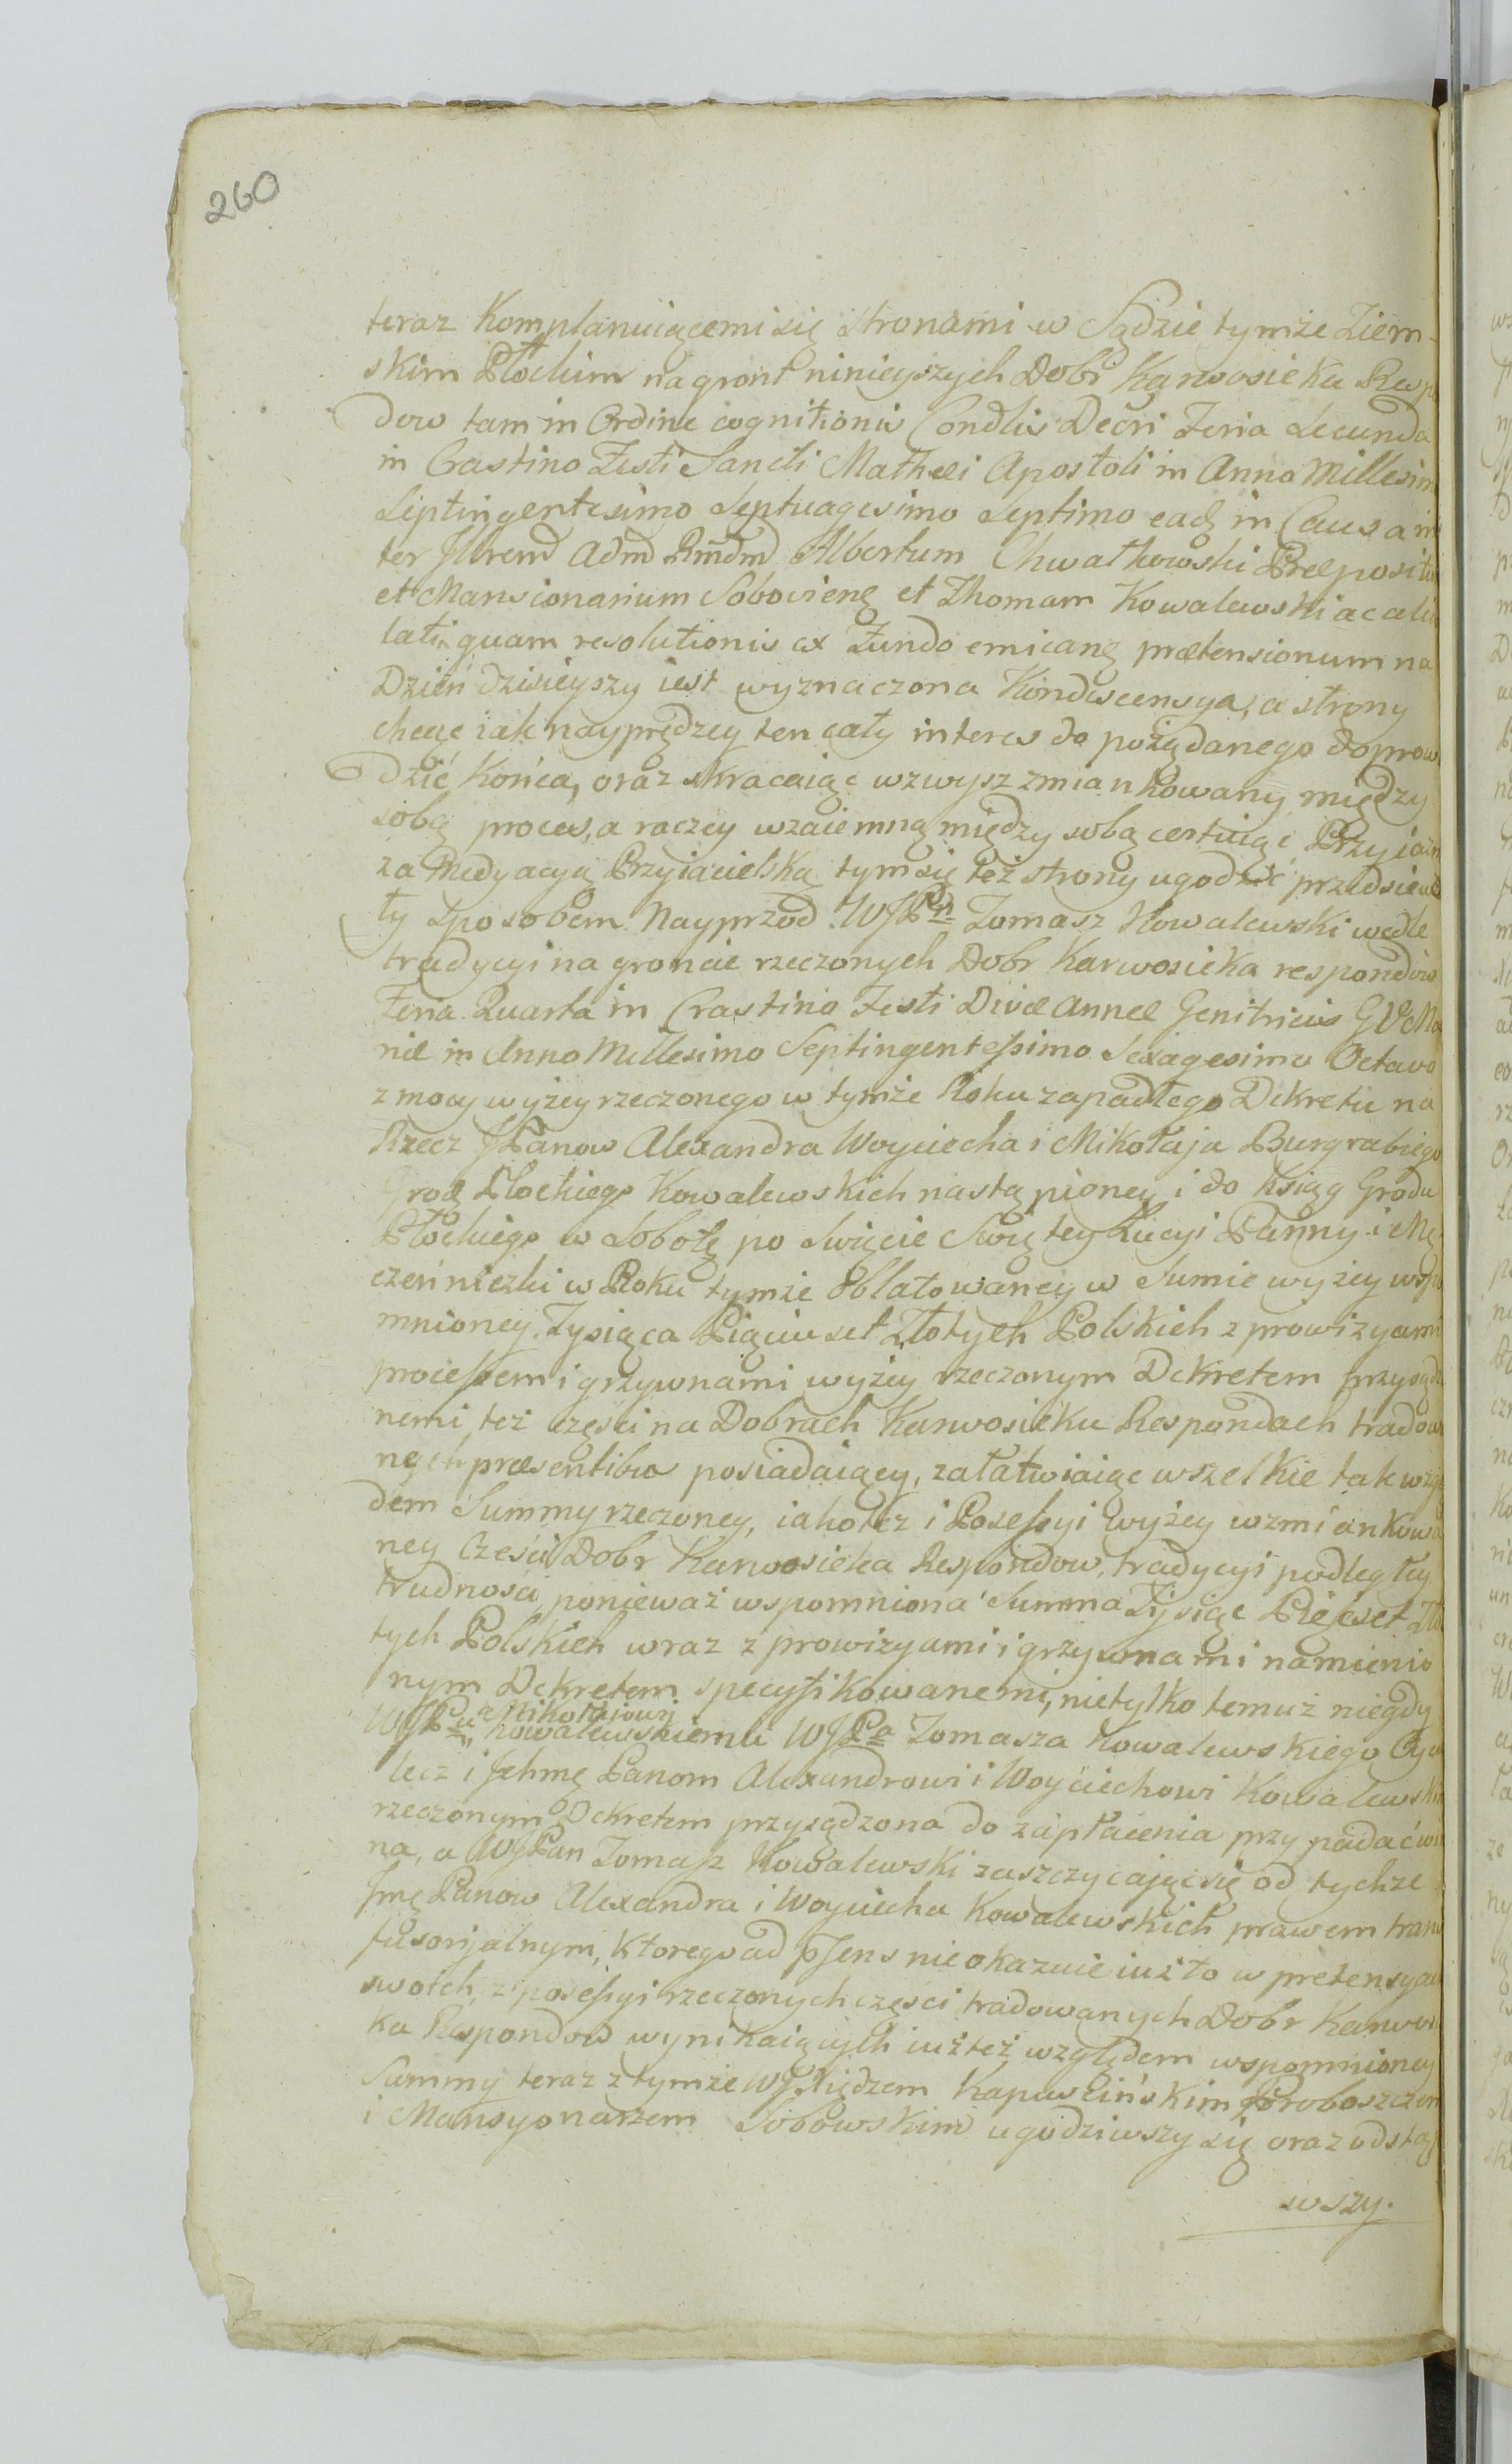 260
teraz Komplanuiącemi się stronami w Sądzie tymże Ziem-
skim Płockim na gront ninieyszych Dobr Karwosieka Resp
dow tam in Ordine cognitionis Condlis Decri Feria Secunda
in Crastino Festi Sancti Mathæi Apostoli in Anno Millesim
Septingentesimo Septuagesimo Septimo ead in Causa in
ter Jllrem Adm Rmdm Albertum Chwatkowski Præpositu
et Mansionarium Sobovieng et Thomam Kowalewski ac ali
latin quam resolutionis ex Fundo emicang prætensionum na
Dzień dzisieyszy iest wyznaczona Kondescensya, a strony
chcąc iak nayprędzey ten cały interes do pożądanego doprow
dzić Końca, oraz skracaiąc wzwysz zmiankowany między
sobą proces, a raczey wzaiemną między sobą certuiąc Przyiaźn
za Medyacyą Przyiacielską tym się też strony ugodzić przedsiewz
ły sposobem Nayprzod WJPn Tomasz Kowalewski wedle
tradycyi na groncie rzeczonych Dobr Karwosieka respondow
Feria Quarta in Crastino Festi Divæ Annæ Genitricis GVMa
riæ in Anno Millesimo Septingentessimo Sexagesimo Octavo
z mocy wyżey rzeczonego w tymże Roku zapadłego Dekretu na
Rzecz JPanow Alexandra Woyciecha i Mikołaja Burgrabiego
Grod Płockiego Kowalewskich nastąpioney i do Ksiąg Grodu
Płockiego w Sobotę po Swięcie Swiętey Łucyi Panny i Mę
czenniczki w Roku tymże oblatowaney w Sumie wyżey wspo
mnioney Tysiąca Pięciuset Złotych Polskich z prowizyami
processem i grzywnami wyżey rzeczonym Dekretem przysądz
nemi też części na Dobrach Karwosieku Respondach tradow
nych præsentibus posiadaiący, załatwiaiąc wszelkie tak wzglę
dem Summy rzeczoney, iako też i Posessyi wyżey wzmiankowa
ney Części Dobr Karwosieka Respondow, tradycyi podległey
trudności, ponieważ wspomniona Summa Tysiąc Pięćset Zło
tych Polskich wraz z prowizyami i grzywnami namienio
nym Dekretem specyfikowanemi, nietylko temuż niegdy
WJPu Mikołajowi Kowalewskiemu WJPa Tomasza Kowalewskiego Oycu
lecz i Jchmę Panom Alexandrowi i Woyciechowi Kowalewskim
rzeczonym Dekretem przysądzona do zapłacenia przypadać win
na, a WJPan Tomasz Kowalewski zaszczycając się od tychże
Jmę Panow Alexandra i Woyciecha Kowalewskich prawem trans
fusorijalnym, ktorego ad psens nie okazuie iuż to w pretensyach
swoich, z posessyi rzeczonych części tradowanych Dobr Karwosie
ka Respondow wynikaiących iuż też względem wspomnioney
Summy teraz z tymże WJ Xiędzem Kapuscińskim Proboszczem
i Mansyonarzem Sobowskim ugodziwszy się oraz odstąpi
wszy.